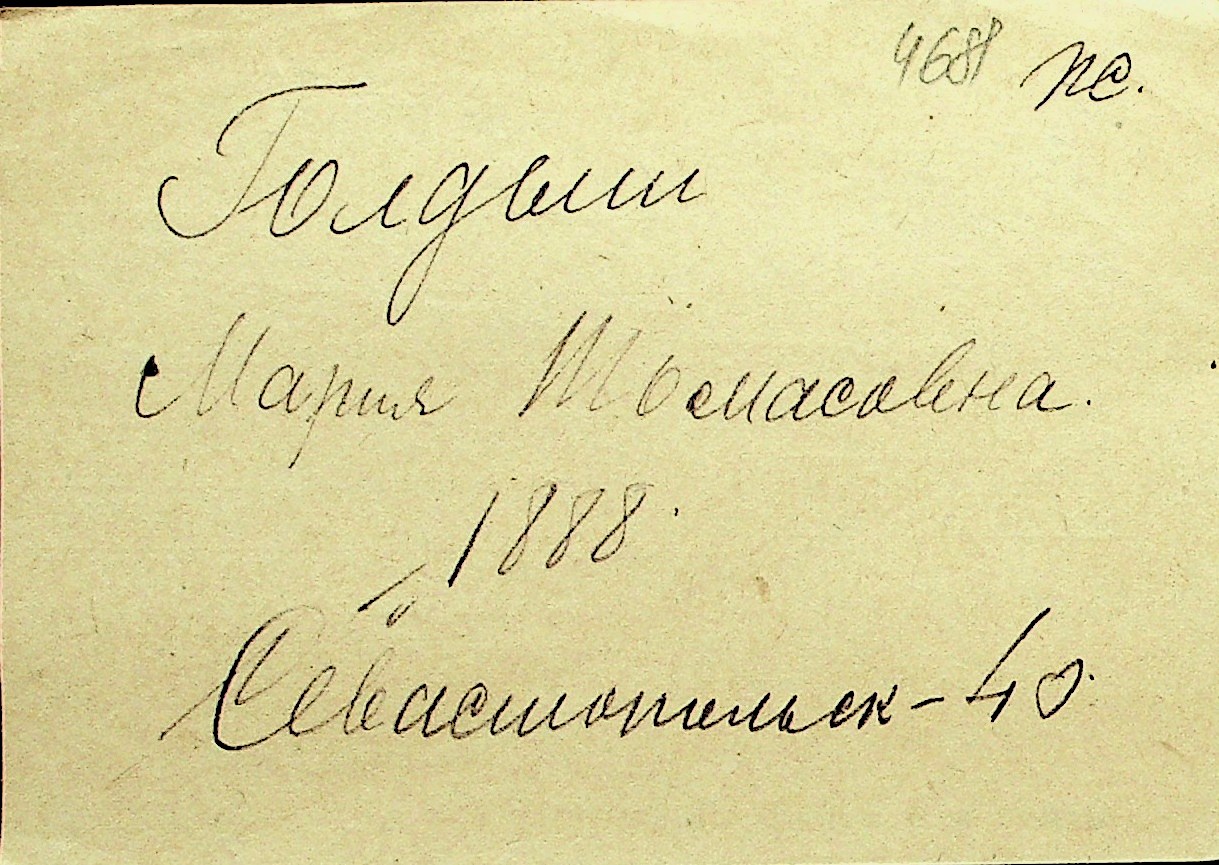 4681 пс.
Голдыш
Мария Томасовна.
1888.
Севастопольск-40